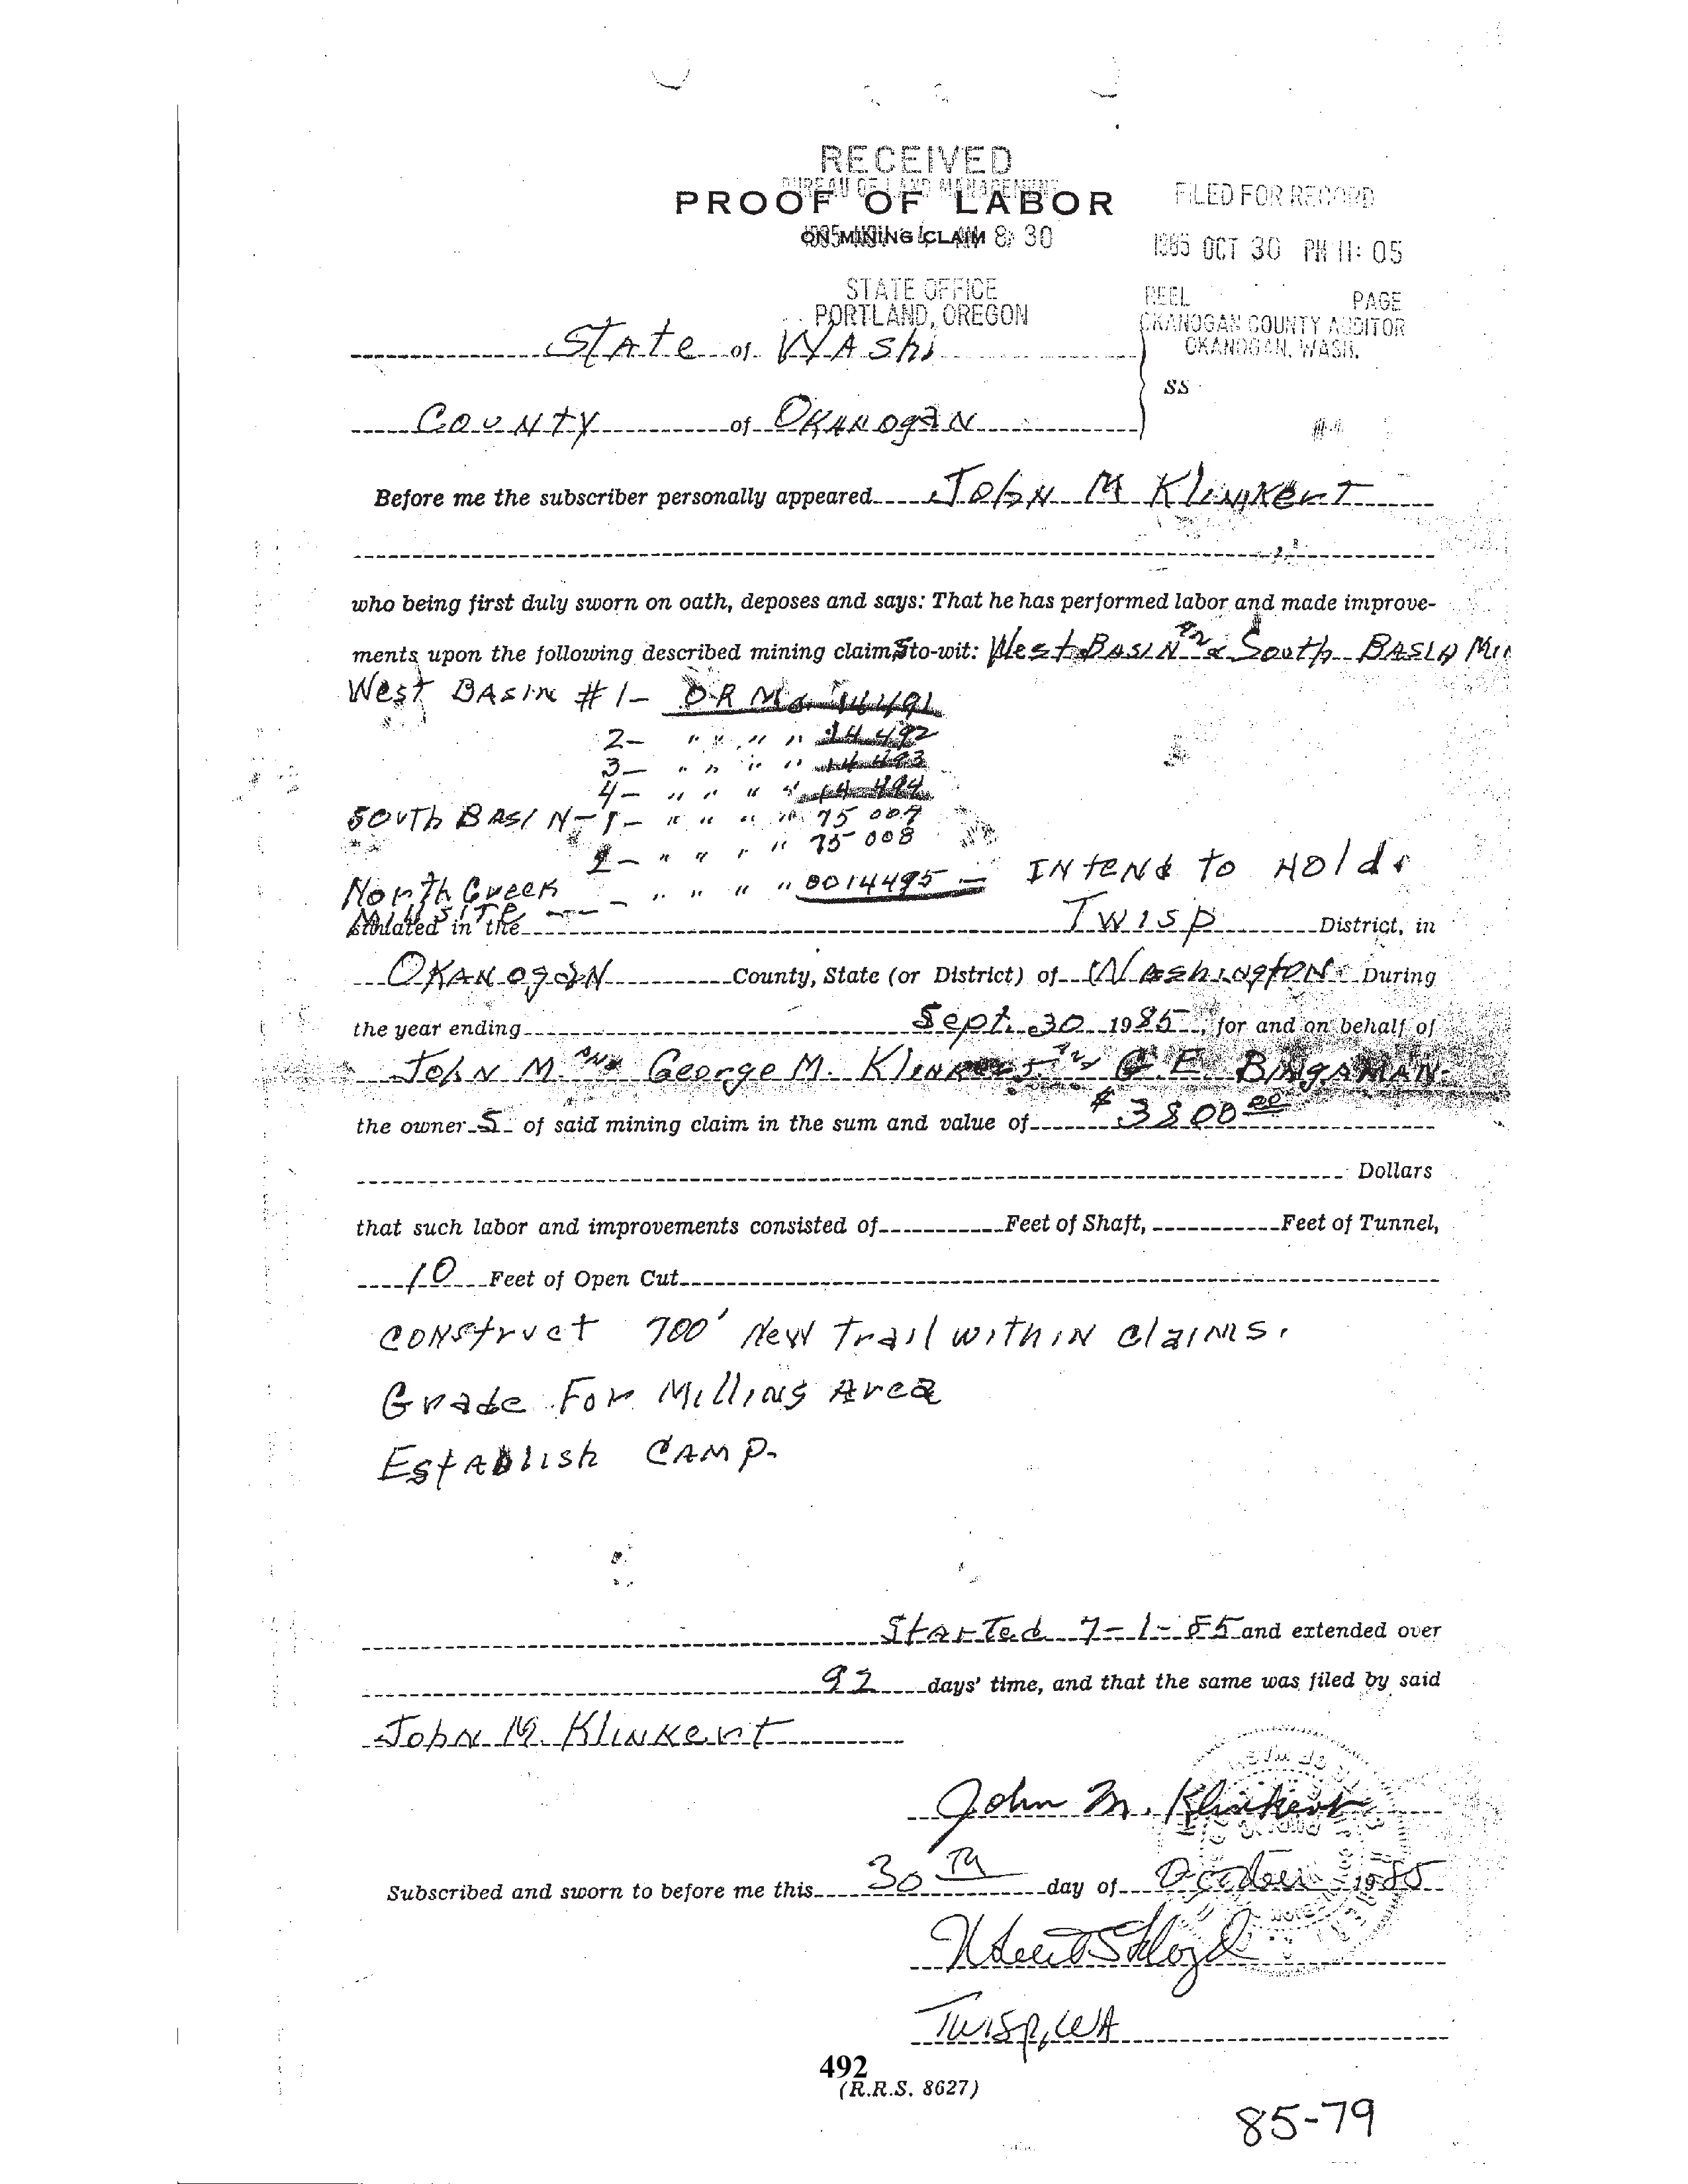 RECEIVED
BUREAU OF LAND MANAGEMENT
PROOF OF LABOR
ON MINING CLAIM
8 30
FILED FOR RECORD
1985 OCT 30 PM 11:05
STATE OFFICE
PORTLAND, OREGON
REEL PAGE
OKANOGAN COUNTY AUDITOR
OKANOGAN, WASH.
State of Washi
SS
County of Okanogan
Before me the subscriber personally appeared John M Klinkert
who being first duly sworn on oath, deposes and says: That he has performed labor and made improve-
ments upon the following described mining claims to-wit: West Basin & South Basin
West Basin #1- OR Mc 14491
2- " " " " 14 492
3- " " " " 14 493
4- " " " " 14 494
South Basin - 1- " " " " 75 007
2- " " " " 75 008
North Creek - " " " " 0014495 - Intend to Hold.
Millsite ---
situated in the Twisp District, in
Okanogan County, State (or District) of Washington During
the year ending Sept. 30 1985, for and on behalf of
John M. and George M. Klinkert and G. E. Bingaman
the owner S of said mining claim in the sum and value of $3800 00
Dollars
that such labor and improvements consisted of Feet of Shaft, Feet of Tunnel,
10 Feet of Open Cut
Construct 700' New Trail within claims.
Grade For Milling Area
Establish Camp.
Started 7-1-85 and extended over
92 days' time, and that the same was filed by said
John M. Klinkert
John M. Klinkert
Subscribed and sworn to before me this 30th day of October 1985
Twisp, WA
492
(R.R.S. 8627)
85-79